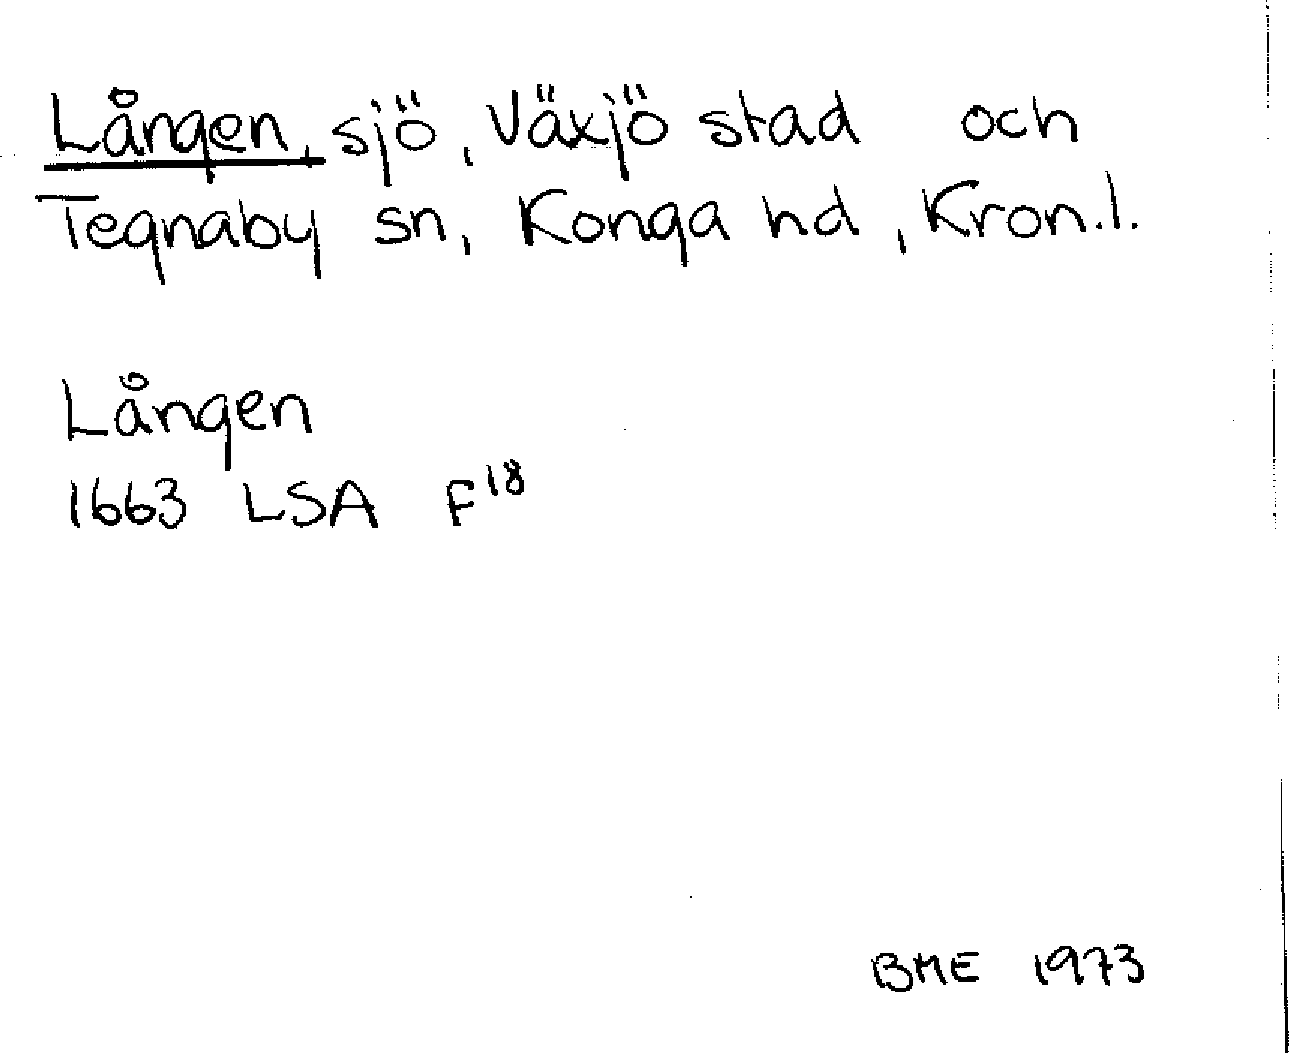 Lången, sjö, Växjö stad och
Tegnaby sn, Konga hd, Kron.l.
Lången
1663 LSA F18
BME 1973